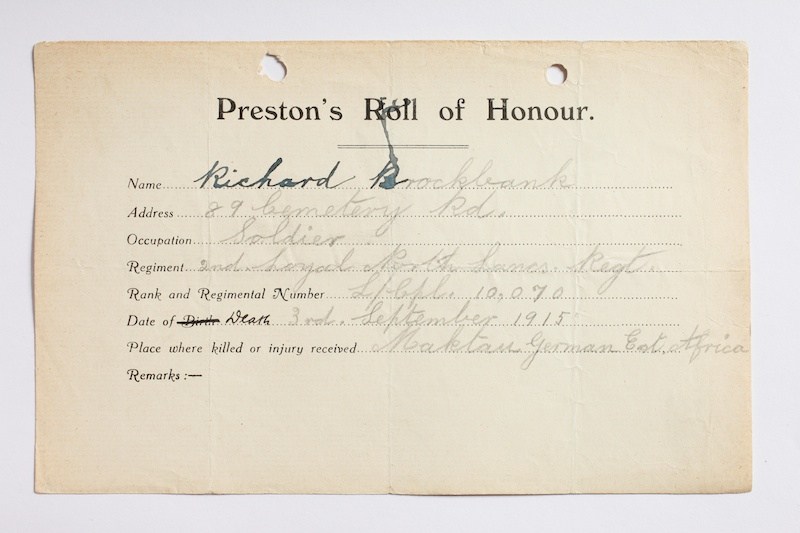 Preston's Roll of Honour.
Name Richard Brockbank
Address 89 Cemetery Rd.
Occupation Soldier
Regiment 2nd. Loyal North Lancs. Regt.
Rank and Regimental Number L/Cpl. 10,070
Date of Birth Death 3rd. September 1915
Place where killed or injury received Maktau German Est. Africa
Remarks :—